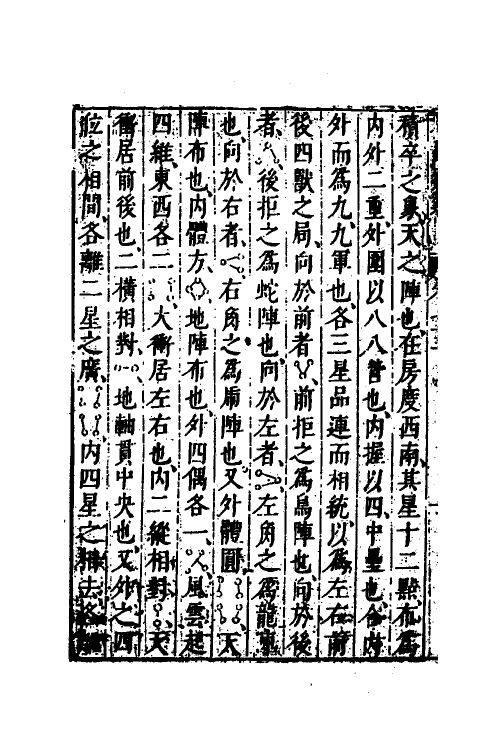 積卒之象天之陣也在房度西南其星十二點布爲
内外二重外圍以八八營也内握以四中壘也合內
外而爲九九軍也各三星品連而相統以爲左右前
後四獸之局向於前者前拒之爲鳥陣也向於後
者後拒之爲蛇陣也向於左者左角之爲龍陣
也向於右者右角之爲虎陣也又外體圓天
陣布也内體方地陣布也外四偶各一風雲起
四維東西各二大衝居左右也内二縱相對天
衝居前後也二橫相對地軸貫中央也又外之四
之相間各離二星之廣内四星之